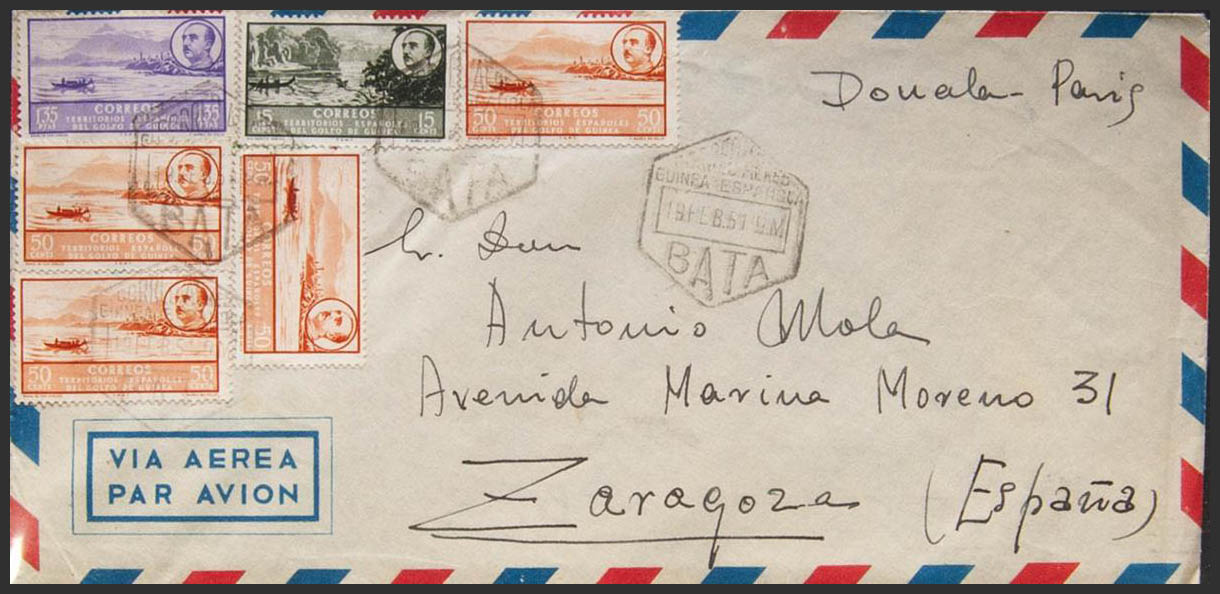 1.35 PTAS CORREOS 1.35 PTAS
TERRITORIOS ESPAÑOLES
DEL GOLFO DE GUINEA
15 CENTS CORREOS 15 CENTS
TERRITORIOS ESPAÑOLES
DEL GOLFO DE GUINEA
50 CENTS CORREOS 50 CENTS
TERRITORIOS ESPAÑOLES
DEL GOLFO DE GUINEA
Douala-Paris
50 CENTS CORREOS 50
TERRITORIOS ESPAÑOLES
DEL GOLFO DE GUINEA
50 CORREOS 50
TERRITORIOS ESPAÑOLES
DEL GOLFO DE GUINEA
50 CENTS CORREOS 50 CENTS
TERRITORIOS ESPAÑOLES
DEL GOLFO DE GUINEA
BATA
BATA
CORREO AEREO
GUINEA ESPAÑOLA
19 FEB.51
BATA
Don
Antonio Mola
Avenida Marina Moreno 31
Zaragoza (España)
VIA AEREA
PAR AVION